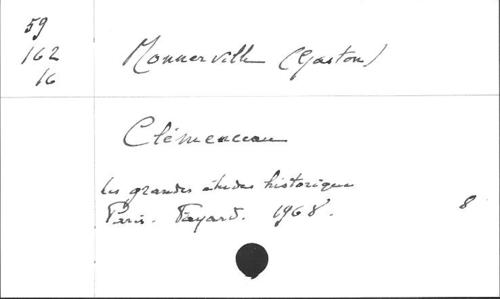 59
162
16
Monnerville (Gaston)
Clémenceau
Les grandes études historique
Paris. Fayard. 1968. 8